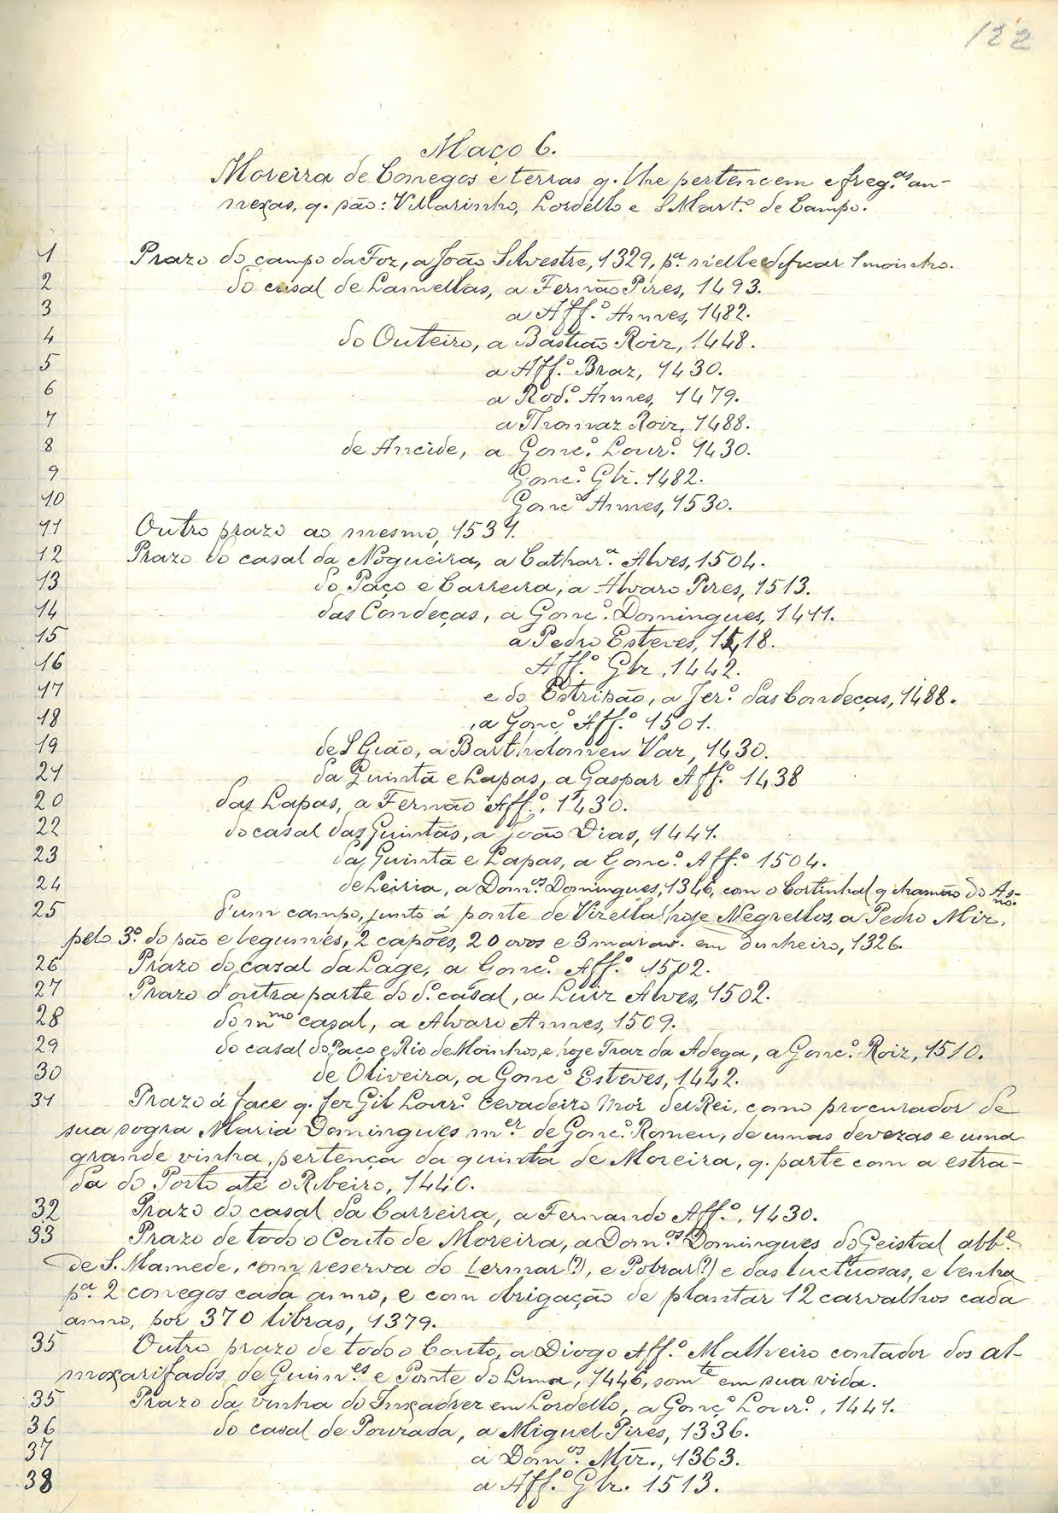 122
Maço 6.
Moreira de Conegos e terras q. lhe pertencem e freg.as an-
nexas, q. são: Villarinho, Lordello e S Mart.o de Campo.
1 Prazo do campo da Foz, a João Silvestre, 1329, p.a n'elle edificar 1 moinho.
2 do casal de Lamellas, a Fernão Pires, 1493.
3 a Aff.o Annes, 1482.
4 do Outeiro, a Bastião Roiz, 1448.
5 a Aff.o Braz, 1430.
6 a Rod.o Annes, 1479.
7 a Thomaz Roiz, 1488.
8 de Ancide, a Gonc.o Lour.o 1430.
9 Gonc.o Glz. 1482.
10 Gonc.o Annes, 1530.
11 Outro prazo ao mesmo, 1531.
12 Prazo do casal da Nogueira, a Cathar.a Alves, 1504.
13 do Paço e Carreira, a Alvaro Pires, 1513.
14 das Condeças, a Gonc.o Domingues, 1411.
15 a Pedro Esteves, 1518.
16 Aff.o Glz, 1442.
17 e do Estrisão, a Jer.o das Condeças, 1488.
18 , a Gonç.o Aff.o 1501.
19 de S Gião, a Bartholomeu Vaz, 1430.
21 da Quintã e Lapas, a Gaspar Aff.o 1438
20 das Lapas, a Fernão Aff.o, 1430.
22 do casal das Quintãs, a João Dias, 1441.
23 da Quintã e Lapas, a Gonc.o Aff.o 1504.
24 de Leiria, a Dom.os Domingues, 1346, com o Cortinhal q chamão do As-
no.
25 d'um campo, junto á ponte de Vizella hoje Negrellos, a Pedro Miz,
pelo 3.o do pão e legumes, 2 capões, 20 ovos e 3 marav. em dinheiro, 1326.
26 Prazo do cazal da Lage, a Gonc.o Aff.o 1502.
27 Prazo d'outra parte do d.o casal, a Luiz Alves, 1502.
28 do m.mo casal, a Alvaro Annes, 1509.
29 do casal do Paço e Rio de Moinhos, e hoje Traz da Adega, a Gonc.o Roiz, 1510.
30 de Oliveira, a Gonc.o Esteves, 1442.
31 Prazo á face q. fez Gil Lour.o Cevadeiro Mór del Rei, como procurador de
sua sogra Maria Domingues m.er de Gonc.o Romeu, de umas devezas e uma
grande vinha, pertença da quintã de Moreira, q. parte com a estra-
da do Porto até o Ribeiro, 1440.
32 Prazo do casal da Carreira, a Fernando Aff.o, 1430.
33 Prazo de todo o Couto de Moreira, a Dom.os Domingues do Geistal abb.e
de S. Mamede, com reserva do Lermar(?), e Pobrar(?) e das luctuosas, e lenha
p.a 2 conegos cada anno, e com obrigação de plantar 12 carvalhos cada
anno, por 370 libras, 1379.
35 Outro prazo de todo o Couto, a Diogo Aff.o Malheiro contador dos al-
moxarifados de Guim.es e Ponte do Lima, 1446, som.te em sua vida.
35 Prazo da vinha do Enxadrez em Lordello, a Gonç.o Lour.o, 1441.
36 do casal de Pourada, a Miguel Pires, 1336.
37 a Dom.os Miz., 1363.
38 a Aff.o Glz. 1513.